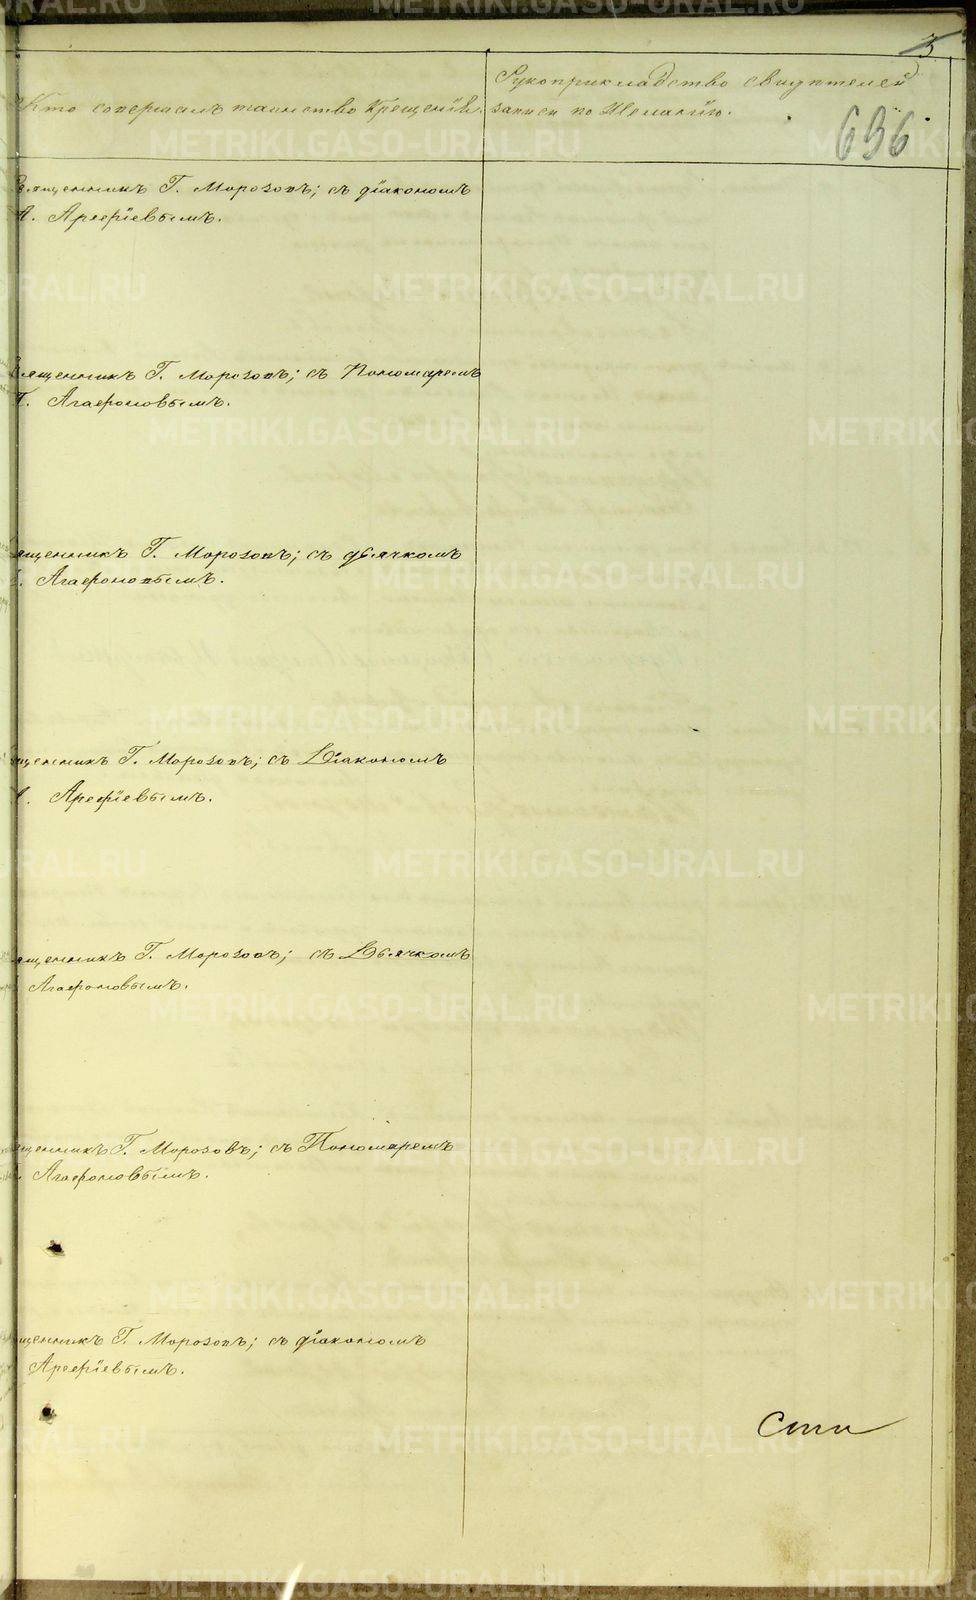 3
Рукоприкладство свидѣтелей
Кто совершалъ таинство крещенія. записи по желанію.
636
Священникъ Г. Морозовъ; съ діакономъ
А. Арефіевымъ.
Священникъ Г. Морозовъ; съ Пономаремъ
Агафоновымъ.
ященникъ Г. Морозовъ; съ дьячкомъ
Агафоновымъ.
щенникъ Г. Морозовъ; съ Діакономъ
А. Арефіевымъ.
ященникъ Г. Морозовъ; съ Дьячкомъ
Агафоновымъ.
щенникъ Г. Морозовъ; съ Пономаремъ
Агафоновымъ.
щенникъ Г. Морозовъ; съ діакономъ
Арефіевымъ.
METRIKI.GASO-URAL.RU